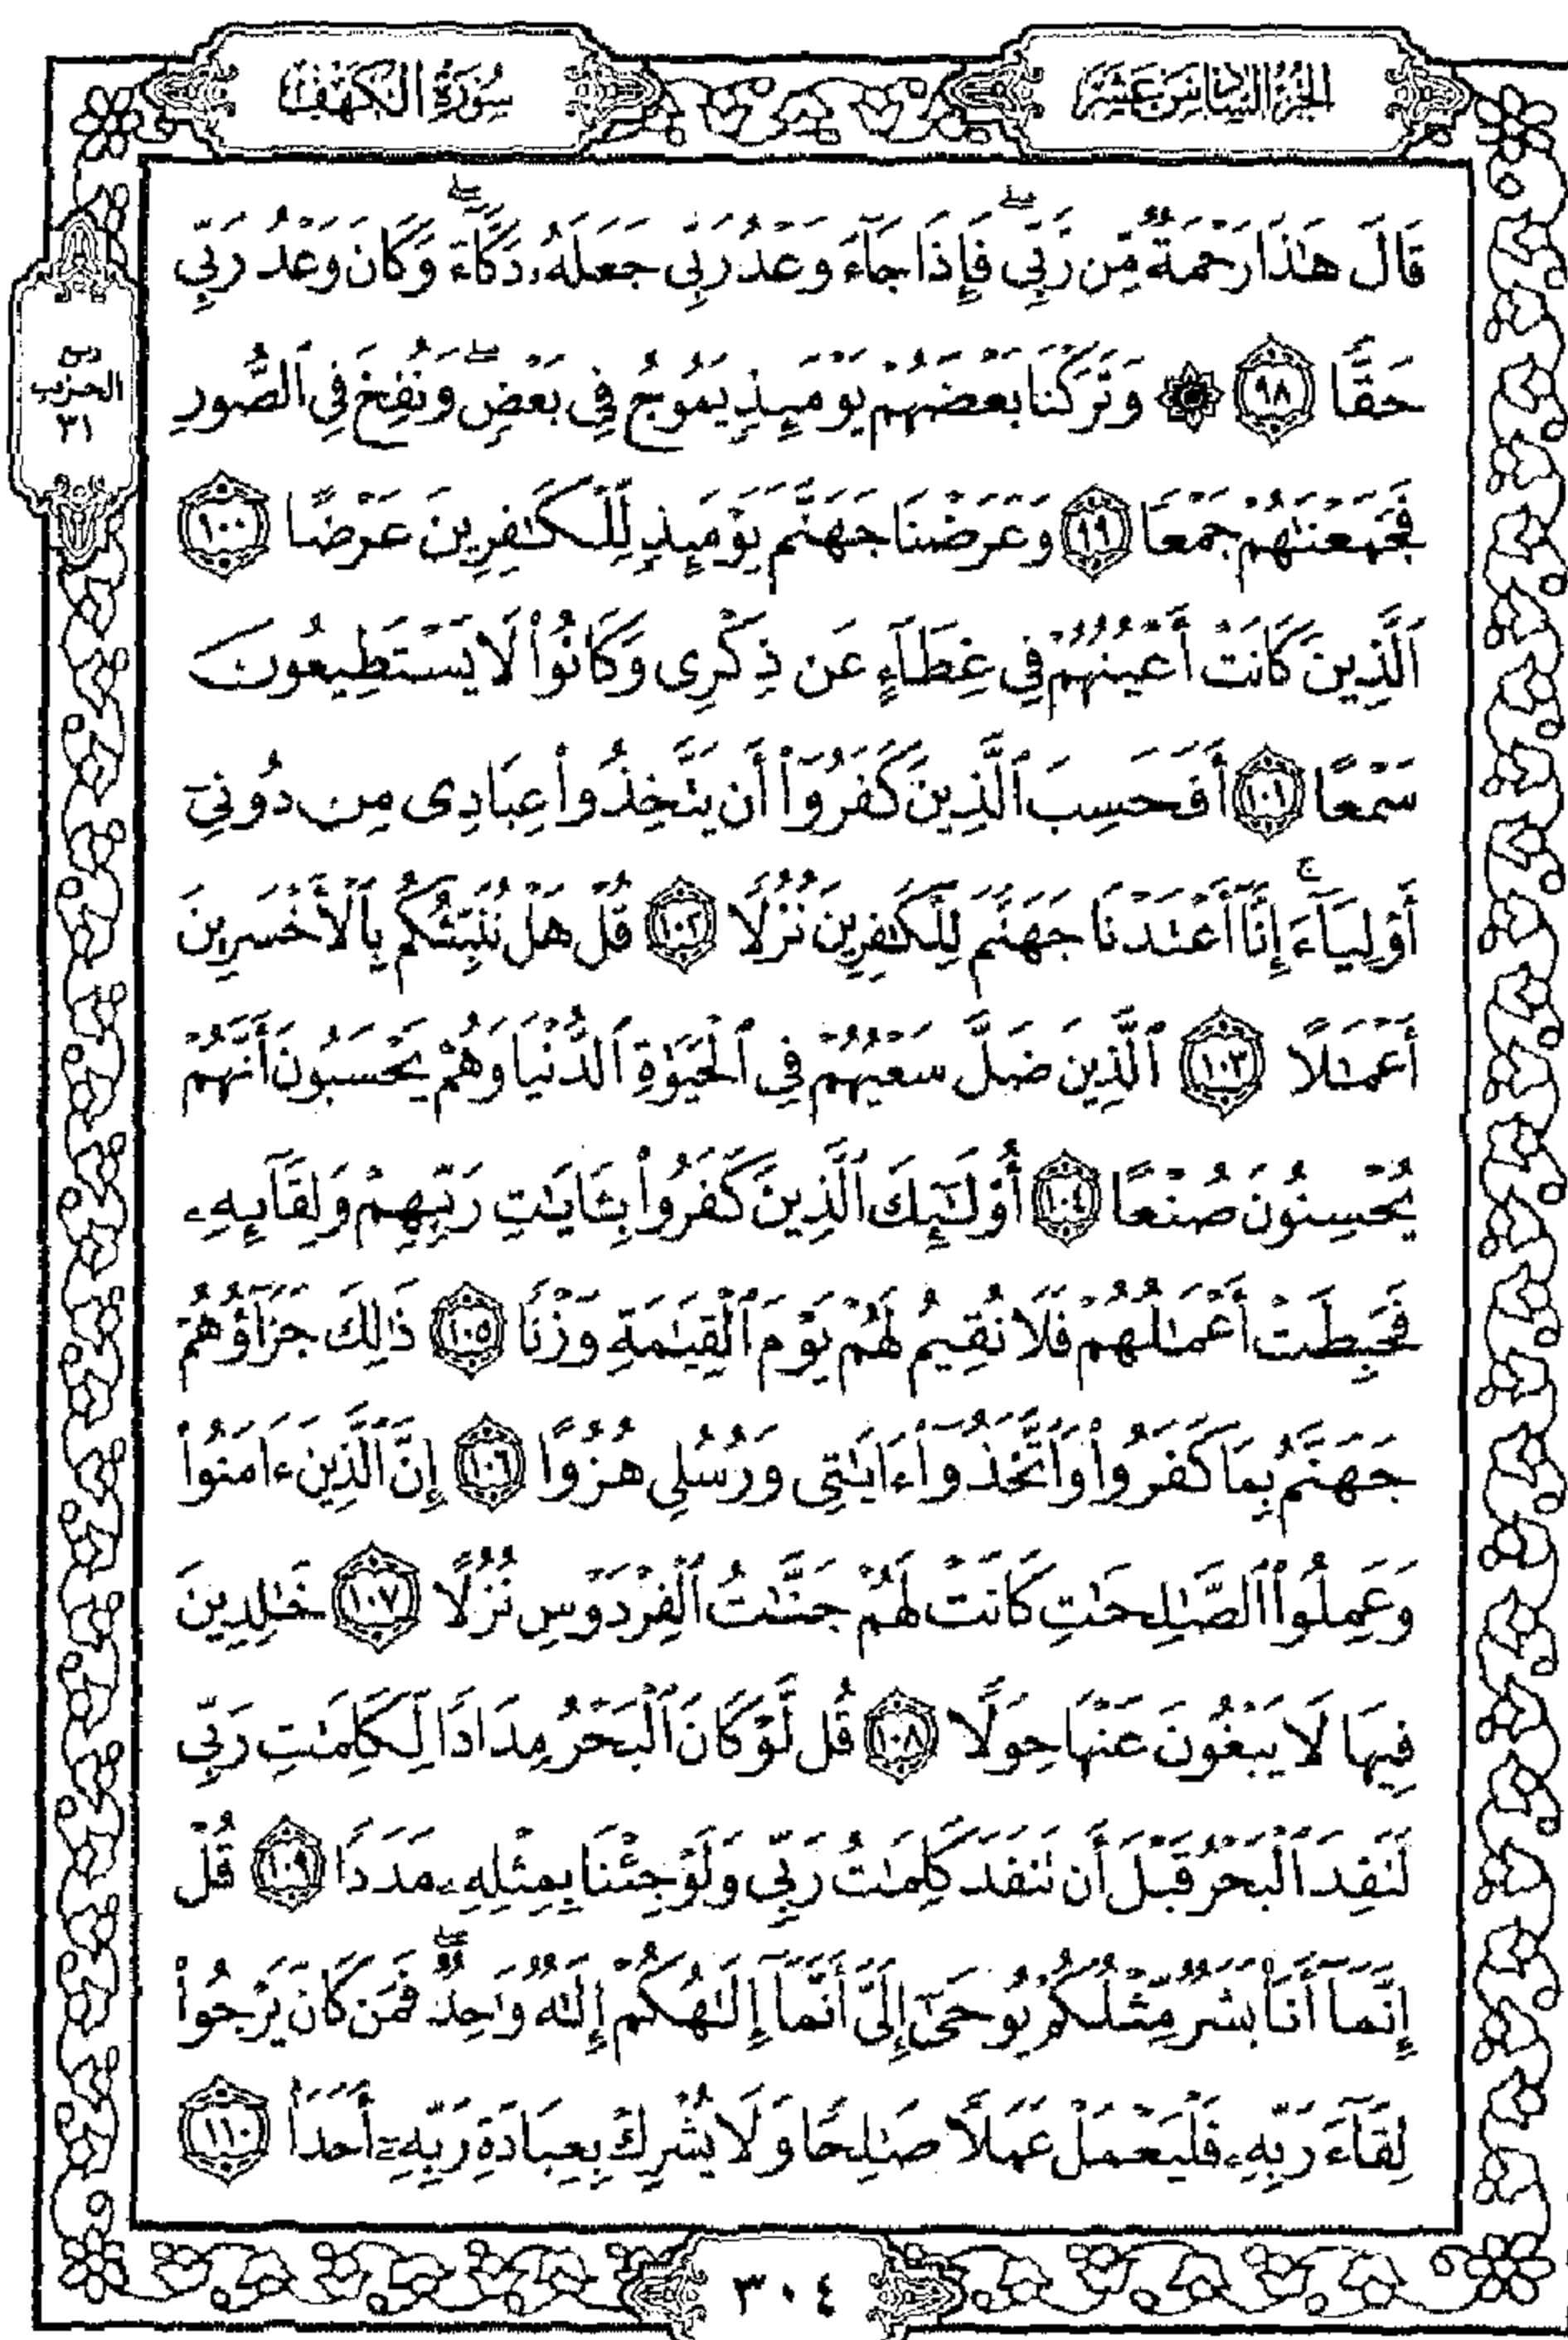 الجزء السادس عشر
سورة الكهف
قَالَ هَٰذَا رَحْمَةٌ مِّن رَّبِّي ۖ فَإِذَا جَآءَ وَعْدُ رَبِّي جَعَلَهُۥ دَكَّآءَ ۖ وَكَانَ وَعْدُ رَبِّي
حَقًّا ٩٨ ۞ وَتَرَكْنَا بَعْضَهُمْ يَوْمَئِذٍ يَمُوجُ فِي بَعْضٍ ۖ وَنُفِخَ فِي ٱلصُّورِ
ربع
الحزب
٣١
فَجَمَعْنَٰهُمْ جَمْعًا ٩٩ وَعَرَضْنَا جَهَنَّمَ يَوْمَئِذٍ لِّلْكَٰفِرِينَ عَرْضًا ١٠٠
ٱلَّذِينَ كَانَتْ أَعْيُنُهُمْ فِي غِطَآءٍ عَن ذِكْرِي وَكَانُوا۟ لَا يَسْتَطِيعُونَ
سَمْعًا ١٠١ أَفَحَسِبَ ٱلَّذِينَ كَفَرُوٓا۟ أَن يَتَّخِذُوا۟ عِبَادِي مِن دُونِيٓ
أَوْلِيَآءَ ۚ إِنَّآ أَعْتَدْنَا جَهَنَّمَ لِلْكَٰفِرِينَ نُزُلًا ١٠٢ قُلْ هَلْ نُنَبِّئُكُم بِٱلْأَخْسَرِينَ
أَعْمَٰلًا ١٠٣ ٱلَّذِينَ ضَلَّ سَعْيُهُمْ فِي ٱلْحَيَوٰةِ ٱلدُّنْيَا وَهُمْ يَحْسَبُونَ أَنَّهُمْ
يُحْسِنُونَ صُنْعًا ١٠٤ أُو۟لَٰٓئِكَ ٱلَّذِينَ كَفَرُوا۟ بِـَٔايَٰتِ رَبِّهِمْ وَلِقَآئِهِۦ
فَحَبِطَتْ أَعْمَٰلُهُمْ فَلَا نُقِيمُ لَهُمْ يَوْمَ ٱلْقِيَٰمَةِ وَزْنًا ١٠٥ ذَٰلِكَ جَزَآؤُهُمْ
جَهَنَّمُ بِمَا كَفَرُوا۟ وَٱتَّخَذُوٓا۟ ءَايَٰتِي وَرُسُلِي هُزُوًا ١٠٦ إِنَّ ٱلَّذِينَ ءَامَنُوا۟
وَعَمِلُوا۟ ٱلصَّٰلِحَٰتِ كَانَتْ لَهُمْ جَنَّٰتُ ٱلْفِرْدَوْسِ نُزُلًا ١٠٧ خَٰلِدِينَ
فِيهَا لَا يَبْغُونَ عَنْهَا حِوَلًا ١٠٨ قُل لَّوْ كَانَ ٱلْبَحْرُ مِدَادًا لِّكَلِمَٰتِ رَبِّي
لَنَفِدَ ٱلْبَحْرُ قَبْلَ أَن تَنفَدَ كَلِمَٰتُ رَبِّي وَلَوْ جِئْنَا بِمِثْلِهِۦ مَدَدًا ١٠٩ قُلْ
إِنَّمَآ أَنَا۠ بَشَرٌ مِّثْلُكُمْ يُوحَىٰٓ إِلَيَّ أَنَّمَآ إِلَٰهُكُمْ إِلَٰهٌ وَٰحِدٌ ۖ فَمَن كَانَ يَرْجُوا۟
لِقَآءَ رَبِّهِۦ فَلْيَعْمَلْ عَمَلًا صَٰلِحًا وَلَا يُشْرِكْ بِعِبَادَةِ رَبِّهِۦٓ أَحَدًۢا ١١٠
٣٠٤